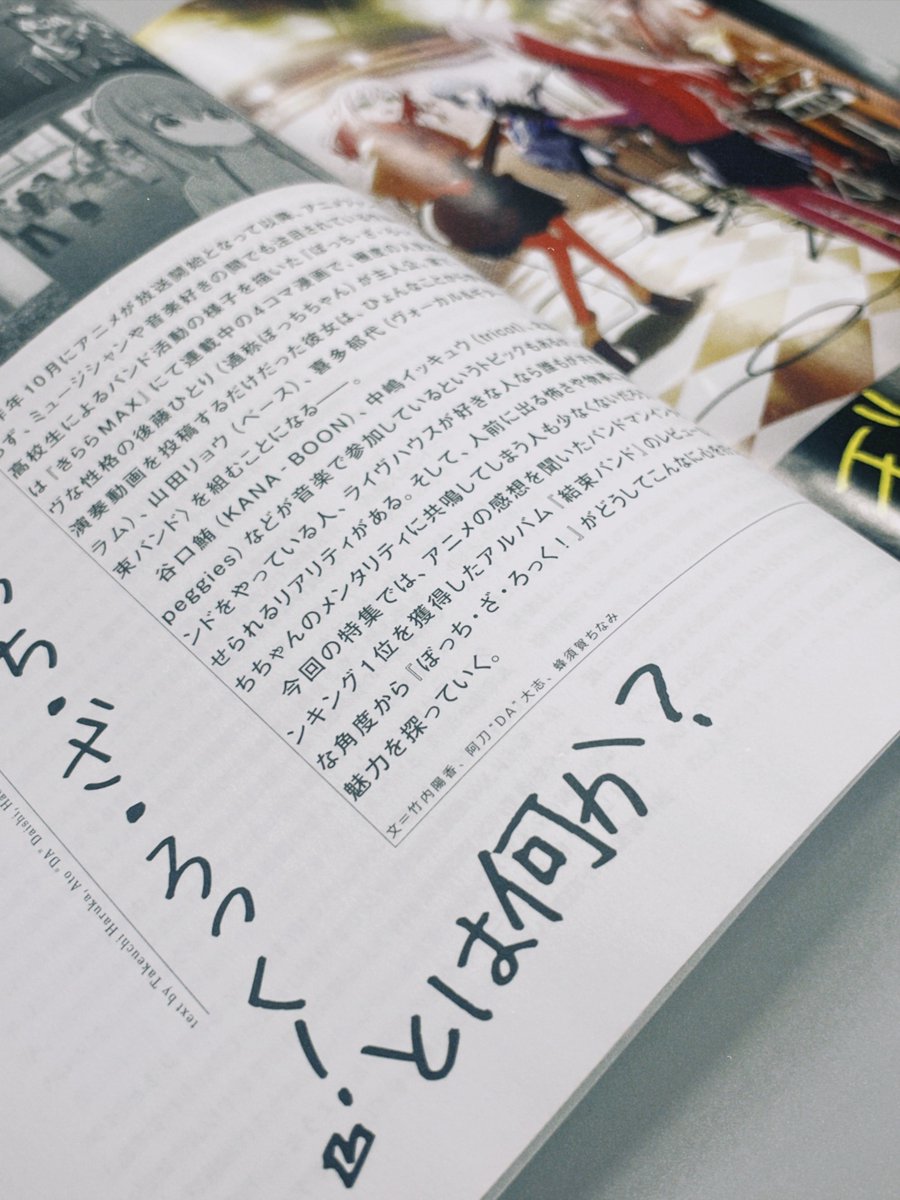 年10月にアニメが放送開始となって以降、アニメフ
ず、ミュージシャンや音楽好きの間でも注目されている
高校生によるバンド活動の様子を描いた『ぼっち・ざ・
は『きららMAX』にて連載中の4コマ漫画で、極度の人
ヴな性格の後藤ひとり（通称ぼっちちゃん）が主人公。
演奏動画を投稿するだけだった彼女は、ひょんなことから
ラム）、山田リョウ（ベース）、喜多郁代（ヴォーカル＆ギ
束バンド〉を組むことになる――。
谷口鮪（KANA-BOON）、中嶋イッキュウ（tricot）、
peggies）などが音楽で参加しているというトピックも
ンドをやっている人、ライヴハウスが好きな人なら誰もが
せられるリアリティがある。そして、人前に出る怖さや物事
ちちゃんのメンタリティに共鳴してしまう人も少なくないだろう
今回の特集では、アニメの感想を聞いたバンドマンイン
ンキング1位を獲得したアルバム『結束バンド』のレビュー
な角度から『ぼっち・ざ・ろっく！』がどうしてこんなに心を
魅力を探っていく。
文＝竹内陽香、阿刀“DA”大志、蜂須賀ちなみ
ち・ざ・ろっく！
とは何か？
text by Takeuchi Haruka, Ato "DA" Daishi,